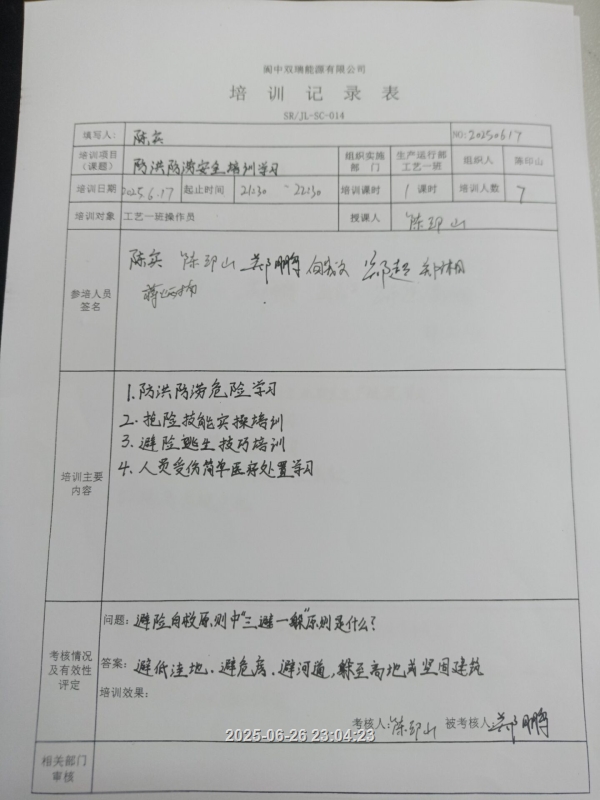 阆中双瑞能源有限公司
培训记录表
SR/JL-SC-014
填写人: 陈实 NO:20250617
培训项目(课题) 防洪防涝安全培训学习 组织实施部门 生产运行部工艺一班 组织人 陈印山
培训日期 2025.6.17 起止时间 21:30 ~22:30 培训课时 1课时 培训人数 7
培训对象 工艺一班操作员 授课人 陈印山
参培人员签名 陈实 陈印山 郑鹏 郑超
培训主要内容
1.防洪防涝危险学习
2.抢险技能实操培训
3.避险逃生技巧培训
4.人员受伤简单医疗处置学习
考核情况及有效性评定
问题:避险自救原则中“三避一躲”原则是什么?
答案:避低洼地、避危房、避河道,躲至高地或坚固建筑
培训效果:
考核人:陈印山 被考核人:郑鹏
2025-06-26 23:04:23
相关部门审核